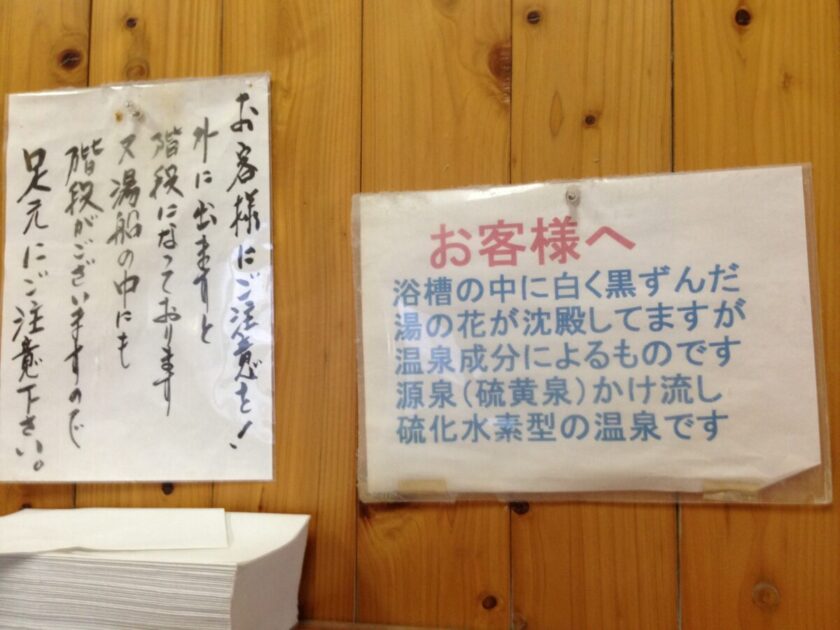 お客様にご注意を!
外に出ますと
階段になっております
又湯船の中にも
階段がございますので
足元にご注意下さい。
お客様へ
浴槽の中に白く黒ずんだ
湯の花が沈殿してますが
温泉成分によるものです
源泉(硫黄泉)かけ流し
硫化水素型の温泉です